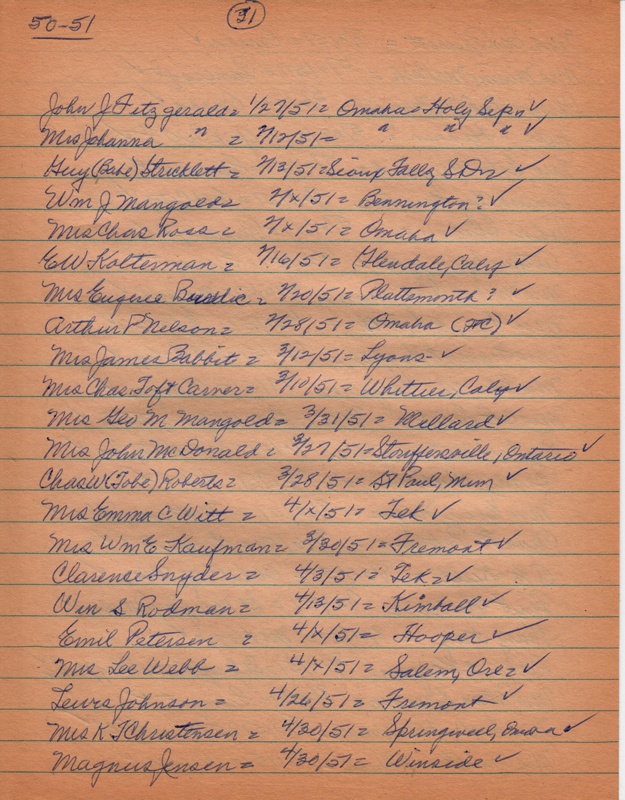 50-51 31
John J Fitzgerald = 1/27/51 = Omaha = Holy Sepn ✓
Mrs Johanna " = 2/12/51 = " " " ✓
Guy (Babe) Stricklett = 2/13/51 = Sioux Falls, S ✓
Wm J Mangold = 2/x/51 = Bennington? ✓
Mrs Chas Ross = 2/x/51 = Omaha ✓
EW Kolterman = 2/16/51 = Glendale, Calif ✓
Mrs Eugene = 2/20/51 = Plattsmouth? ✓
Arthur P Nelson = 2/28/51 = Omaha (FC) ✓
Mrs James Babbit = 3/12/51 = Lyons - ✓
Mrs Chas Toft Carner = 3/10/51 = Whittier, Calif ✓
Mrs Geo M Mangold = 3/31/51 = Millard ✓
Mrs John McDonald = 3/27/51 = Stouffersville, Ontario ✓
Chas W (Tobe) Roberts = 3/28/51 = St Paul, Minn ✓
Mrs Emma C Witt = 4/x/51 = Tek ✓
Mrs Wm E Kaufman = 3/30/51 = Fremont ✓
Clarence Snyder = 4/3/51 = Tek = ✓
Win S Rodman = 4/13/51 = Kimball ✓
Emil Petersen = 4/x/51 = Hooper ✓
Mrs Lee Webb = 4/x/51 = Salem, Ore = ✓
Lewis Johnson = 4/26/51 = Fremont ✓
Mrs K T Christensen = 4/30/51 = ✓
Magnus Jensen = 4/30/51 = Winside ✓